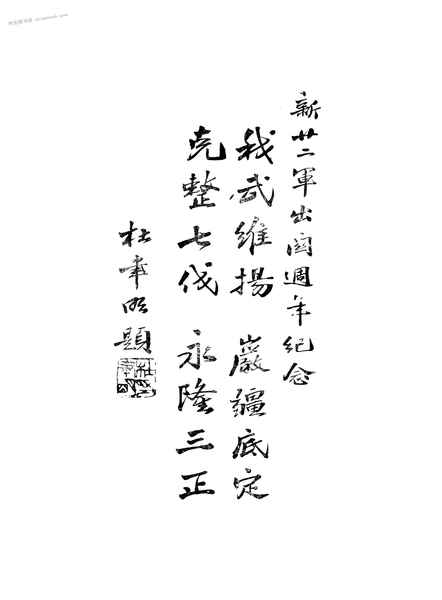 新廿二軍出関週年紀念
我武維揚 嚴疆底定
克整七伐 永隆三正
杜聿明題